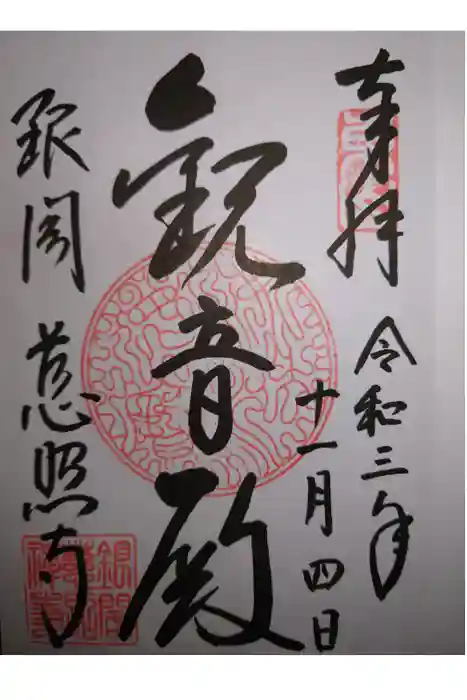 奉拝
令和三年
十一月四日
観音殿
銀閣
慈照寺